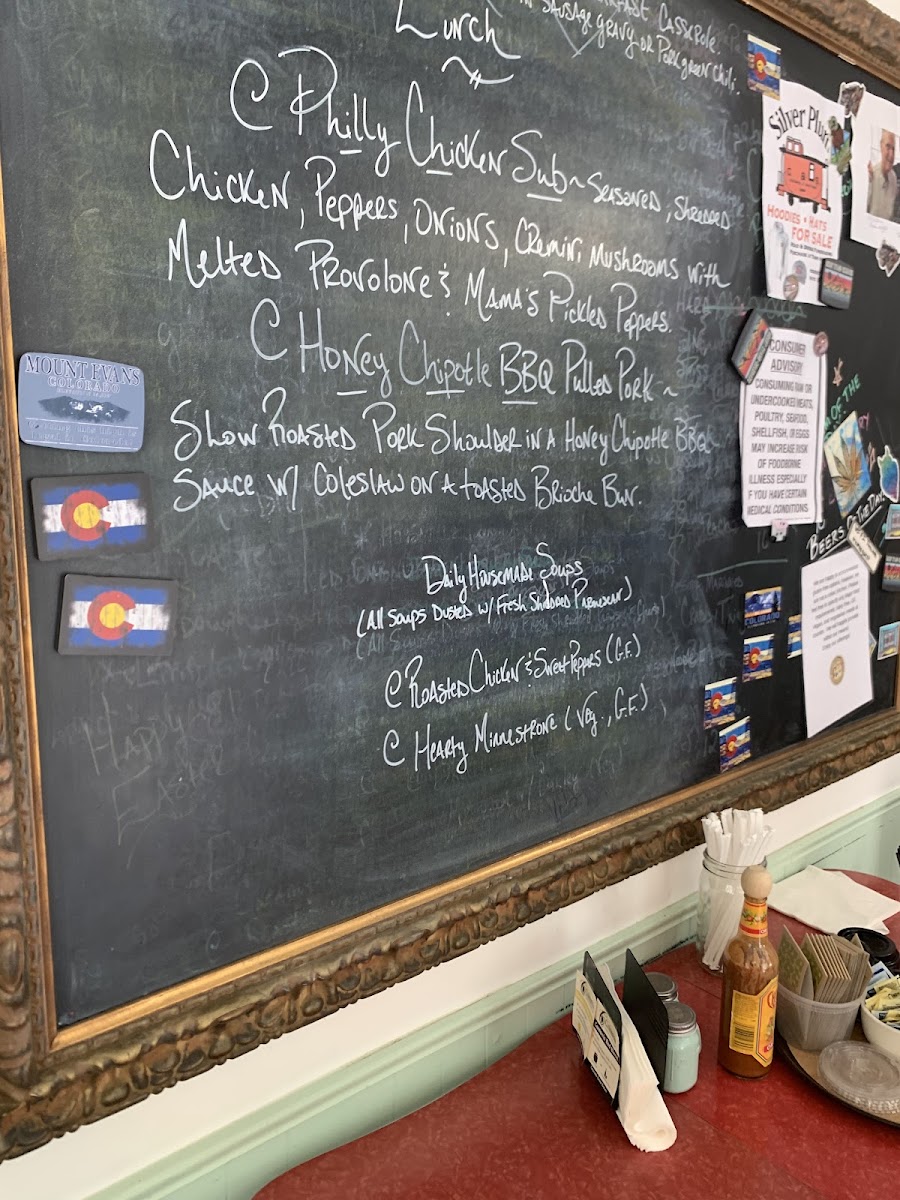 Casserole.
Sausage gravy or Pork green Chili.
Lunch
Philly Chicken Sub ~ Seasoned, Shredded
Chicken, Peppers, Onions, Cremini Mushrooms with
Melted Provolone & Mama's Pickled Peppers.
Honey Chipotle BBQ Pulled Pork ~
Slow Roasted Pork Shoulder in a Honey Chipotle BBQ
Sauce w/ Coleslaw on a toasted Brioche Bun.
Daily Housemade Soups
(All Soups Dusted w/ Fresh Shredded Parmesan)
Roasted Chicken & Sweet Peppers (G.F.)
Hearty Minnestrone (Veg., G.F.)
Happy
Easter
MOUNT EVANS
COLORADO
Silver Plum
HOODIES • HATS
FOR SALE
CONSUMER
ADVISORY
CONSUMING RAW OR
UNDERCOOKED MEATS,
POULTRY, SEAFOOD,
SHELLFISH, OR EGGS
MAY INCREASE RISK
OF FOODBORNE
ILLNESS ESPECIALLY
IF YOU HAVE CERTAIN
MEDICAL CONDITIONS
OF THE
BEERS OF THE DAY
COLORADO